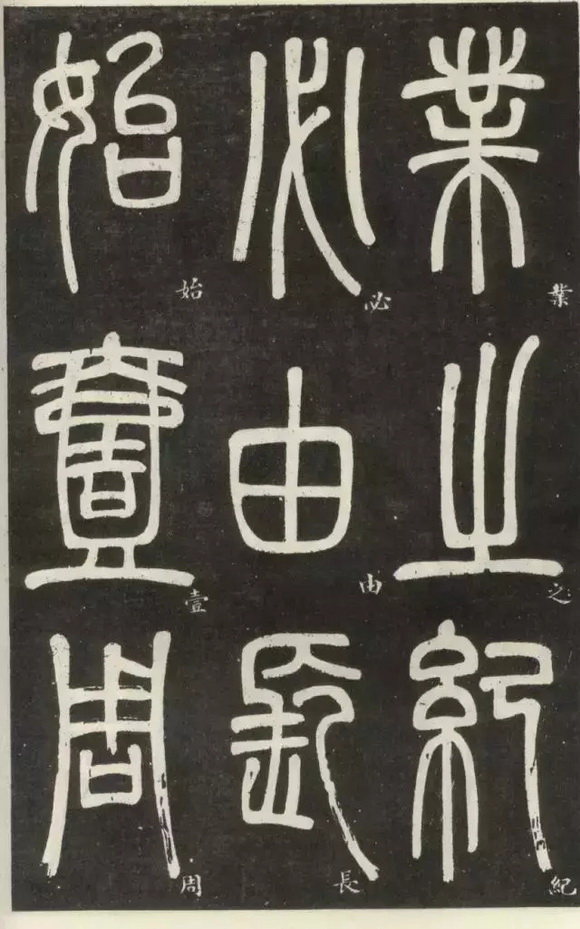 業之紀
必由長
始壹周